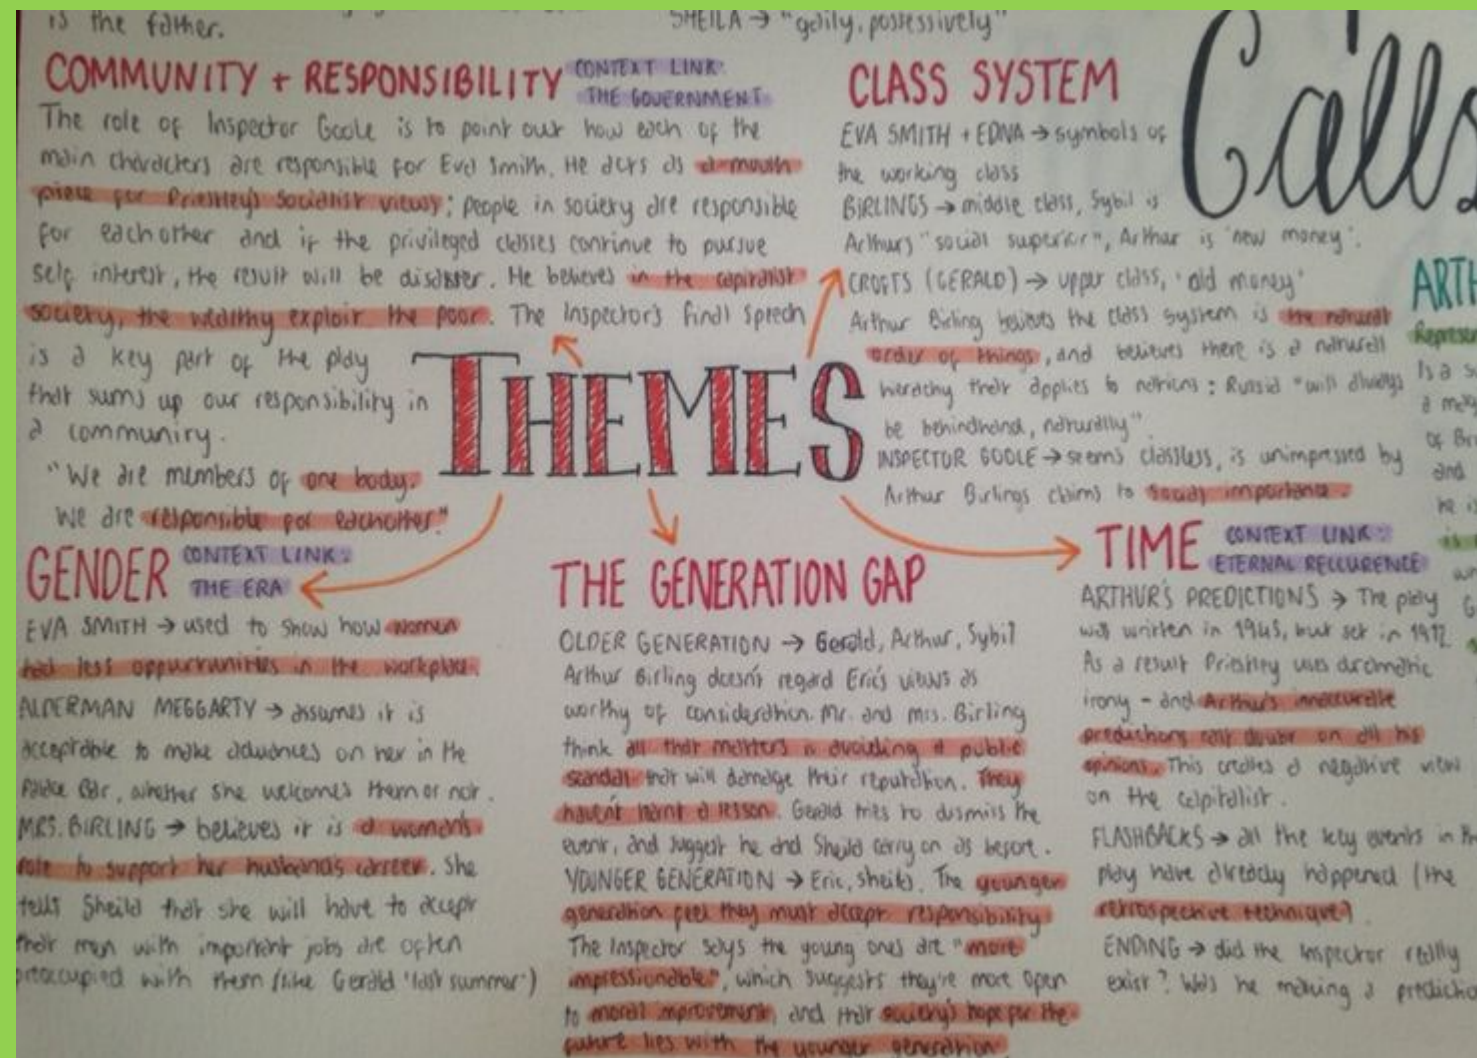 is the father.
SHEILA → "gaily, possessively"
Calls
COMMUNITY + RESPONSIBILITY
CONTEXT LINK:
THE GOVERNMENT
The role of Inspector Goole is to point out how each of the
main characters are responsible for Eva Smith. He acts as a mouth
piece for Priestley's Socialist views; people in society are responsible
for eachother and if the privileged classes continue to pursue
self interest, the result will be disaster. He believes in the capitalist
society, the wealthy exploit the poor. The Inspector's final speech
is a key part of the play
that sums up our responsibility in
a community.
"We are members of one body.
We are responsible for eachother."
CLASS SYSTEM
EVA SMITH + EDNA → symbols of
the working class
BIRLINGS → middle class, Sybil is
Arthurs "social superior", Arthur is 'new money'.
CROFTS (GERALD) → upper class, 'old money'
Arthur Birling believes the class system is the natural
order of things, and believes there is a naturall
herachy that applies to nations: Russia "will always
be behindhand, naturally"
INSPECTOR GOOLE → seems classless, is unimpressed by
Arthur Birlings claims to social importance.
THEMES
GENDER
CONTEXT LINK:
THE ERA
EVA SMITH → used to show how women
had less oppurtunities in the workplace.
ALDERMAN MEGGARTY → assumes it is
acceptable to make advances on her in the
Palace Bar, whether she welcomes them or not.
MRS. BIRLING → believes it is a woman's
role to support her husband's career. She
tells Sheila that she will have to accept
that men with important jobs are often
preoccupied with them (like Gerald 'last summer')
THE GENERATION GAP
OLDER GENERATION → Gerald, Arthur, Sybil
Arthur Birling doesn't regard Eric's views as
worthy of consideration. Mr. and Mrs. Birling
think all that matters is avoiding a public
scandal that will damage their reputation. They
haven't learnt a lesson. Gerald tries to dismiss the
event, and suggest he and Sheila carry on as before.
YOUNGER GENERATION → Eric, Sheila. The younger
generation feel they must accept responsibility
The Inspector says the young ones are "more
impressionable", which suggests they're more open
to moral improvement, and that society's hope for the
future lies with the younger generation
TIME
CONTEXT LINK:
ETERNAL RECCURENCE
ARTHUR'S PREDICTIONS → The play
was written in 1945, but set in 1912.
As a result Priestley uses dramatic
irony - and Arthur's innaccurate
predictions cast doubt on all his
opinions. This creates a negative view
on the capitalist.
FLASHBACKS → all the key events in the
play have already happened (the
retrospective technique)
ENDING → did the Inspector really
exist? Was he making a predictio
ARTH
Represen
Is a s
of Bir
and
he is